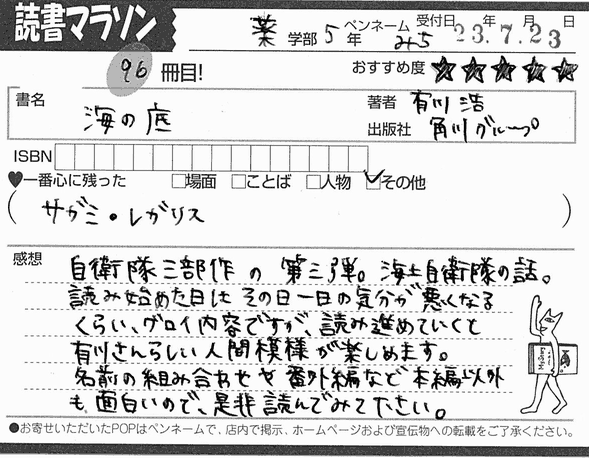 読書マラソン
薬 学部 5年 ペンネーム みち 受付日 23年7.月23日
96 冊目! おすすめ度 ★★★★★
書名 海の底
著者 有川 浩
出版社 角川グループ
ISBN
♥一番心に残った □場面 □ことば □人物 ☑その他
(サガミ・レガリス)
感想 自衛隊三部作の第三弾。海上自衛隊の話。
読み始めた日はその日一日の気分が悪くなる
くらい、グロイ内容ですが、読み進めていくと
有川さんらしい人間模様が楽しめます。
名前の組み合わせや番外編など本編以外
も面白いので、是非読んでみて下さい。
●お寄せいただいたPOPはペンネームで、店内で掲示、ホームページおよび宣伝物への転載をご了承ください。